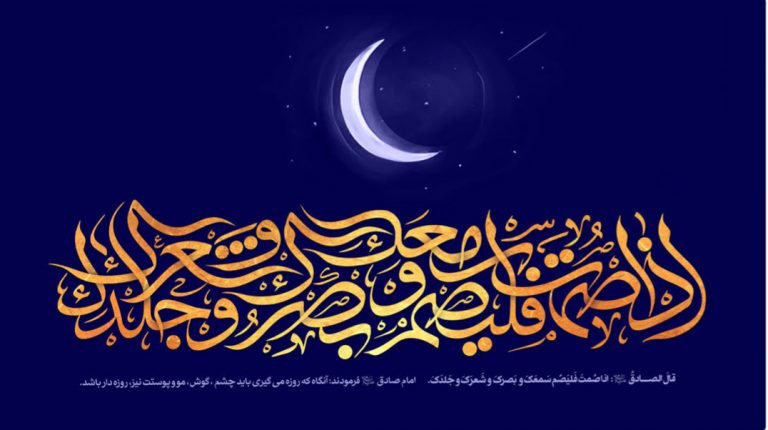 اذا صمت فلیصم سمعک و بصرک و شعرک و جلدک
قالَ الصـــادقُ ﷷ: اذا صُمتَ فَلیَصُم سَمعَکَ وَ بَصرکَ و شَعرَکَ و جَلدَکَ. امام صادق فرمودند: آنگاه که روزه می گیری باید چشم ، گوش ، مو و پوستت نیز، روزه دار باشد.